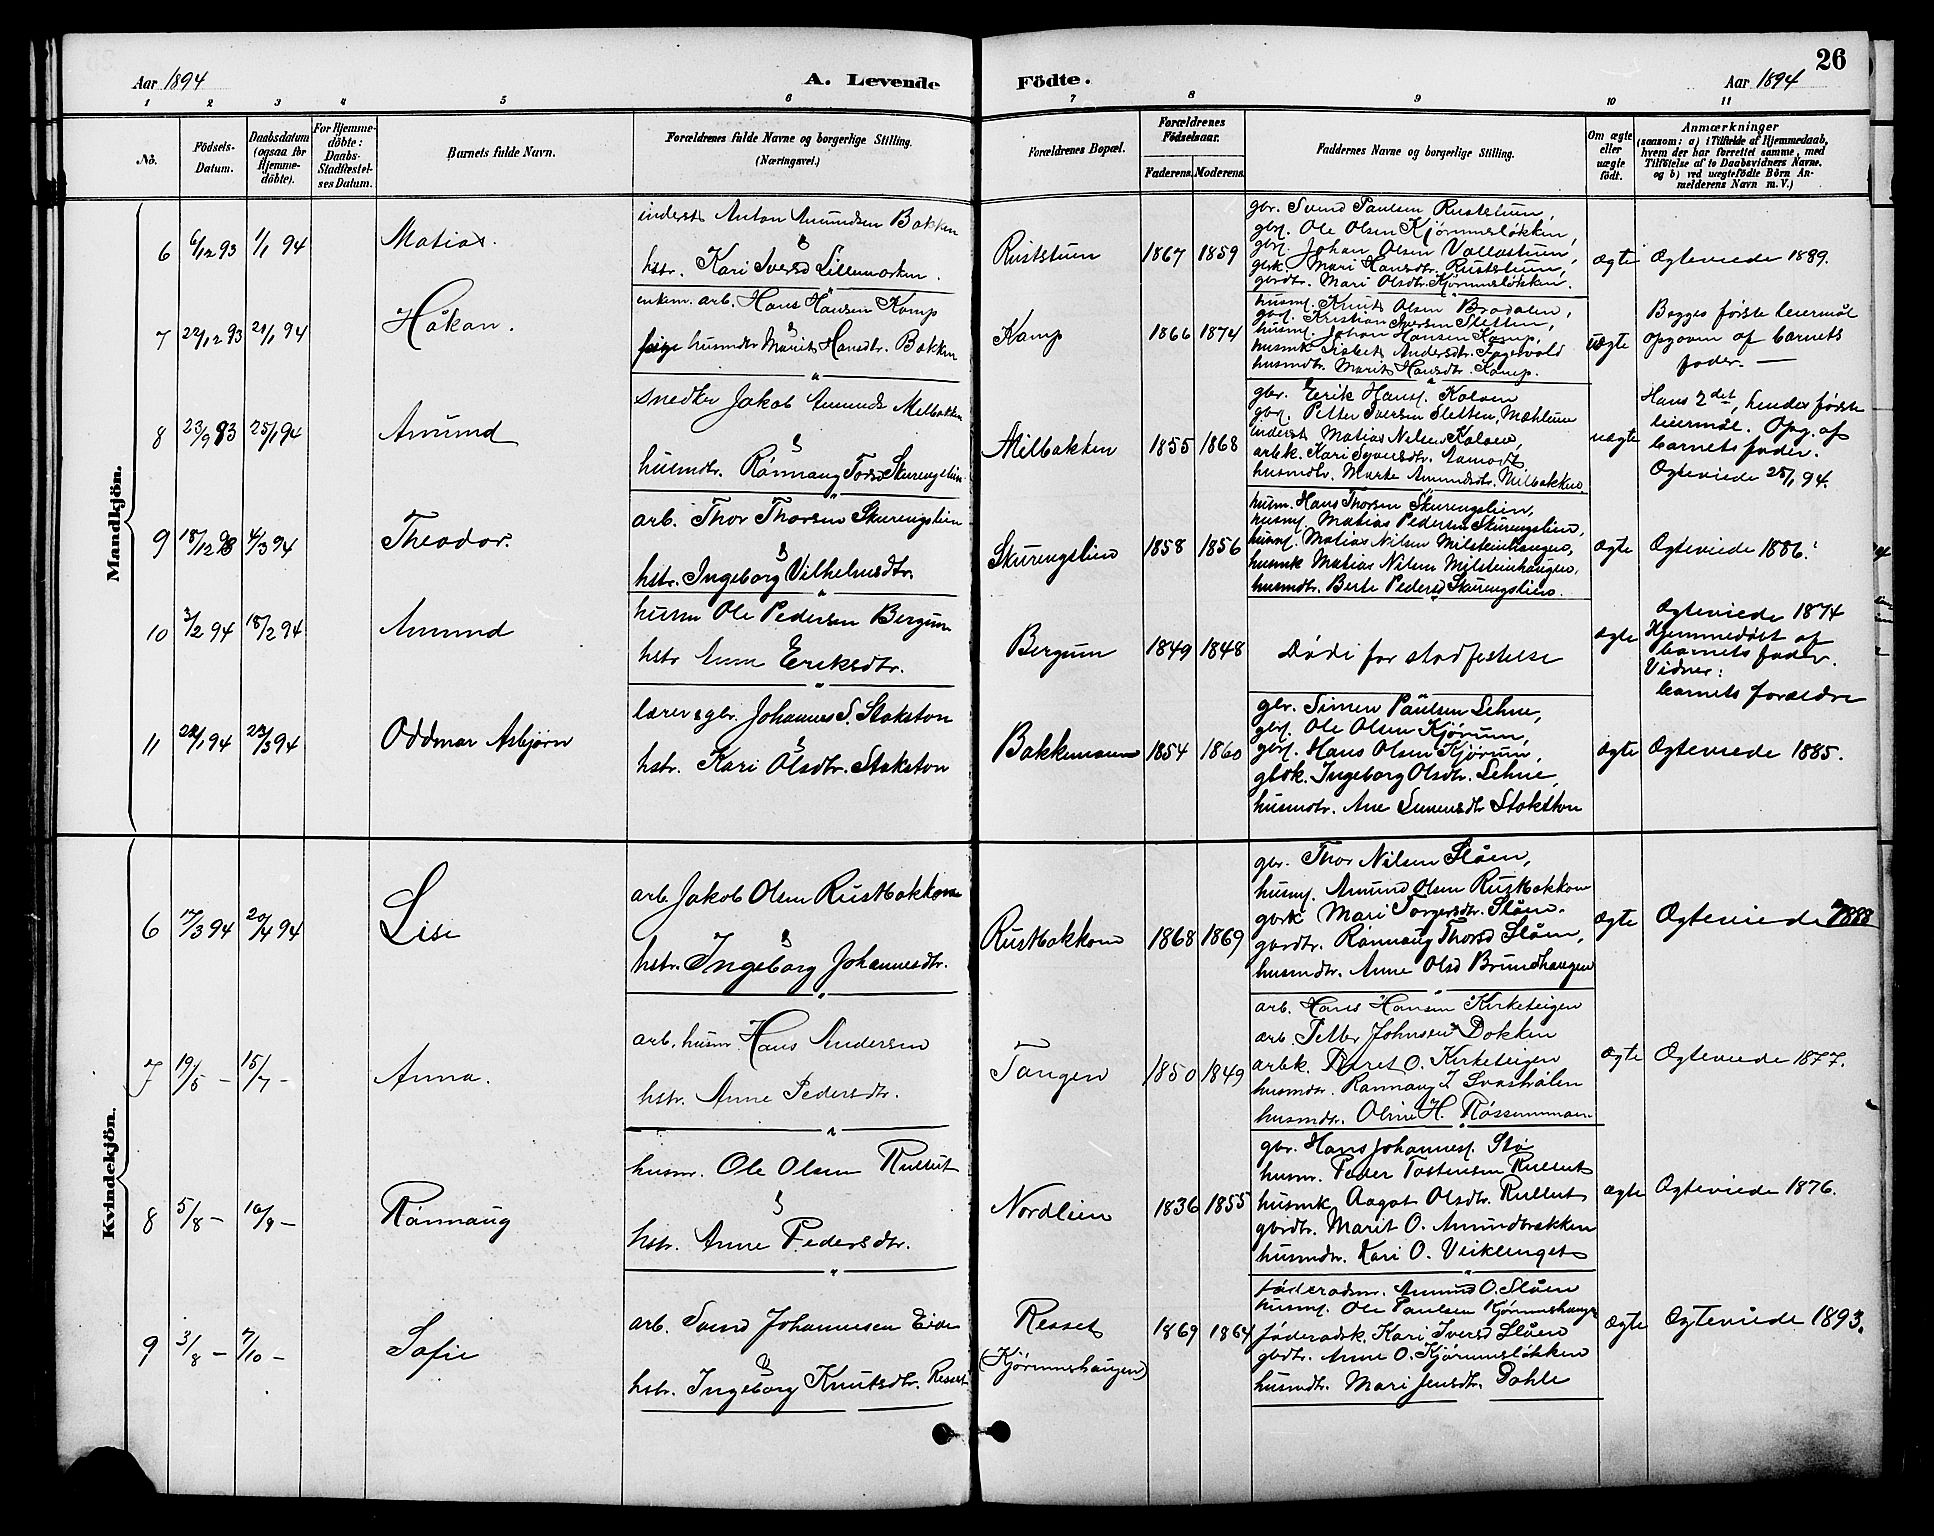 26
Aar 1894
A. Levende Födte.
Aar 1894
1 2 3 4 5 6 7 8 9 10 11
No.
Födsels-Datum.
Daabsdatum (ogsaa for Hjemme-döbte).
For Hjemme-döbte: Daabs-Stadfæstel-ses Datum.
Barnets fulde Navn.
Forældrenes fulde Navne og borgerlige Stilling.
(Næringsvei.)
Forældrenes Bopæl.
Forældrenes Födselsaar.
Faderens. Moderens.
Faddernes Navne og borgerlige Stilling.
Om ægte eller uægte födt.
Anmærkninger
(saasom: a) i Tilfælde af Hjemmedaab,
hvem der har forrettet samme, med
Tilföielse af to Daabsvidners Navne.
og b) ved uægtefödte Börn An-
melderens Navn m. V.)
Mandkjön.
6 6/12 93 1/1 94 Matias
inderst Anton Amundsen Bakken
&
hstr. Kari Iversd Lillemorken.
Ruststuen 1867 1859
gbr. Svend Paulsen Ruststuen,
gbf. Ole Olsen Kjörumsløkken,
gbf. Johan Olsen Vollastuen,
gbrk. Mari Hansdtr. Ruststuen,
gbrdtr. Mari Olsdtr. Kjörumsløkken.
ægte Ægteviede 1889.
7 22/12 93 21/1 94 Håkan.
enkem. arb. Hans Hansen Kamp
&
pige husmdtr Marit Hansdtr. Bakken
Kamp 1866 1874
husmf. Knut Olsen Bradalen,
gbf. Kristian Iversen Sletten,
husmf. Johan Hansen Kamp,
husmk Lisbet Andersdtr. Fagervold
husmdtr. Marit Hansdtr. Kamp.
uægte
Begges første leiermål
opgaven af barnets
fader. —
8 23/9 93 25/1 94 Amund
snedker Jakob Amunds Milbakken
&
husmdtr. Rønnaug Torsd Skurengslien.
Milbakken 1855 1868
gbr. Erik Hansf. Kolven
gbf. Petter Iversen Sletten, Mæhlum
inderst Matias Nilsen Kolven,
arbk. Kari Syversdtr. Aamodt
husmdtr. Marte Amundsdtr. Milbakken.
uægte
Hans 2det, hendes første
leiermål. Opg. af
barnets fader.
Ægteviede 25/1 94.
9 18/12 93 4/3 94 Theodor.
arb. Thor Thorsen Skurengslien
&
hstr. Ingeborg Vilhelmsdtr.
Skurengslien 1858 1856
husm. Hans Thorsen Skurengslien,
husmf. Matias Pedersen Skurengslien,
husmf. Matias Nilsen Milsteinhaugen,
husmk Matias Nilsen Milsteinhaugen.
husmdtr. Berte Pedersd Skurengslien.
ægte Ægteviede 1886.
10 3/2 94 18/2 94 Amund
husm Ole Pedersen Bergum
hstr Anne Eriksdtr.
Bergum 1849 1848
Dødi før stadfestelse
ægte
Ægteviede 1874
Hjemmedøbt af
barnets fader.
Vidner:
barnets forældre
11 22/1 94 22/3 94 Oddmar Asbjørn
lærer & gbr. Johannes S. Stokston
&
hstr. Kari Olsdtr. Stokston
Bakkemoen 1854 1860
gbr. Simen Paulsen Lehne,
gbf. Ole Olsen Kjörum,
gbf. Hans Olsen Kjörum,
gbrk. Ingeborg Olsdtr. Lehne,
husmdtr. Ane Simensdtr Stokston
ægte Ægteviede 1885.
Kvindekjön.
6 17/3 94 20/4 94 Lise
arb. Jakob Olsen Rustbakken
&
hstr. Ingeborg Johannesdtr.
Rustbakken 1868 1869
gbr. Thor Nilsen Slåen,
husmf. Amund Olsen Rustbakken
gbrk Mari Torgersdtr. Slåen.
gbrdtr. Rønnaug Thorsd Slåen,
husmdtr. Anne Olsd Brundhaugen
ægte Ægteviede 1888
7 19/5 – 15/7 – Anna.
arb. husm. Hans Andersen
hstr. Anne Pedersdtr.
Tangen 1850 1849
arb. Hans Hansen Kirketeigen
arb. Petter Johnsen Dokken
arbk. Maret O. Kirketeigen
husmdtr. Rønnaug J. Svastrålen
husmdtr. Oline H. Røssummoen
ægte Ægteviede 1877.
8 5/8 – 16/9 – Rønnaug
husm. Ole Olsen Rullut
&
hstr. Anne Pedersdtr.
Nordlien 1836 1855
gbr. Hans Johannesf. Stø
husm. Peder Tostensen Rullut
husmk Aagot Olsdtr. Rullut
gbrdtr. Marit O. Amundbrækken
husmdtr. Kari O. Veiklenget
ægte Ægteviede 1876.
9 3/8 – 7/10 – Sofie
arb. Svend Johannesen Eide
&
hstr. Ingeborg Knutsdtr. Resset
Resset
(Kjørumshaugen)
1869 1864
føderadsm. Amund O. Slåen
husmf. Ole Paulsen Kjørumshaugen
føderadsk. Kari Iversd Slåen
gbdtr. Anne O. Kjørumsløkken
husmdtr. Mari Jensdtr. Dahle
ægte Ægteviede 1893.